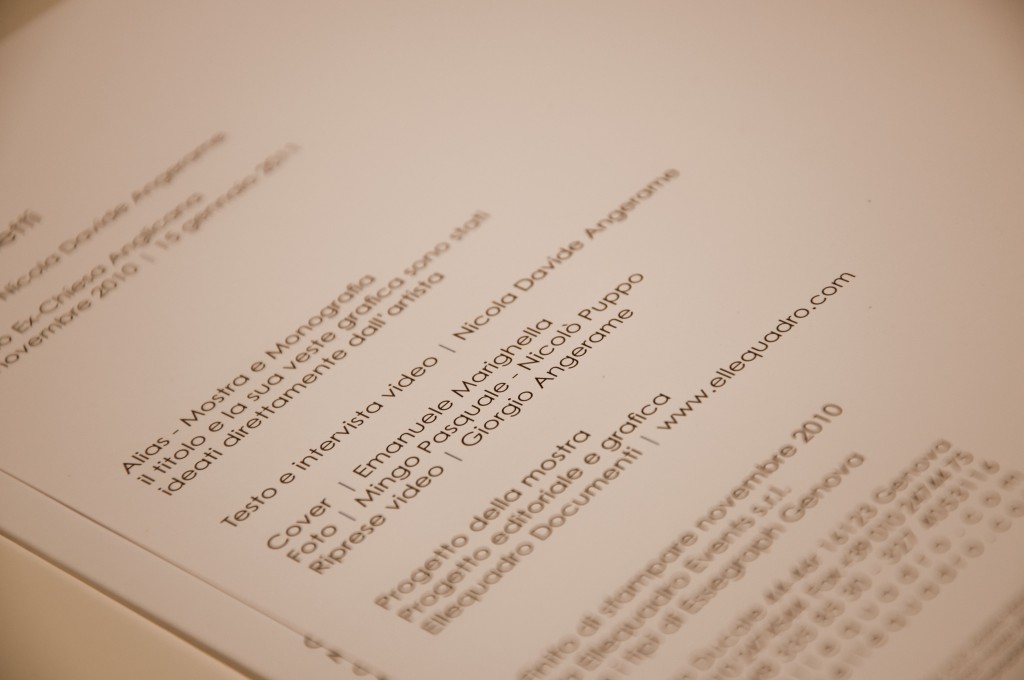 etti
Nicola Davide Angerame
Ex-Chiesa Anglicana
novembre 2010 | 15 gennaio 2011
Alias - Mostra e Monografia
il titolo e la sua veste grafica sono stati
ideati direttamente dall'artista
Testo e intervista video | Nicola Davide Angerame
Cover | Emanuele Marighella
Foto | Mingo Pasquale - Nicolò Puppo
Riprese video | Giorgio Angerame
Progetto della mostra
Progetto editoriale e grafica
Ellequadro Documenti | www.ellequadro.com
Finito di stampare novembre 2010
Ellequadro Events s.r.l.
i tipi di Essegraph Genova
Ducale 44 16123 Genova
Fax +39 010 2474475
335